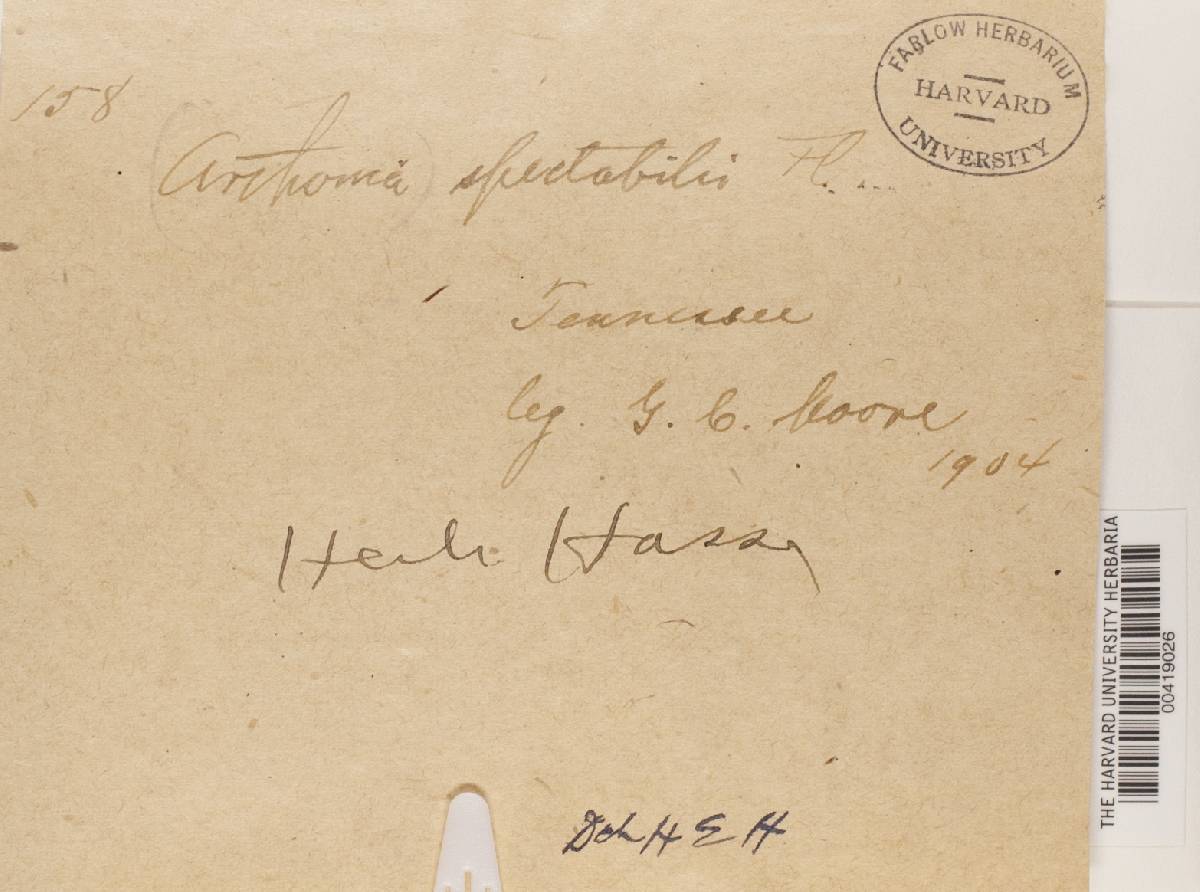 158
(Arthonia) spectabilis Fl.
Tennessee
leg. G. C. Moore
1904
Herb. Hasse
Det H E H
FARLOW HERBARIUM
HARVARD
UNIVERSITY
THE HARVARD UNIVERSITY HERBARIA
00419026